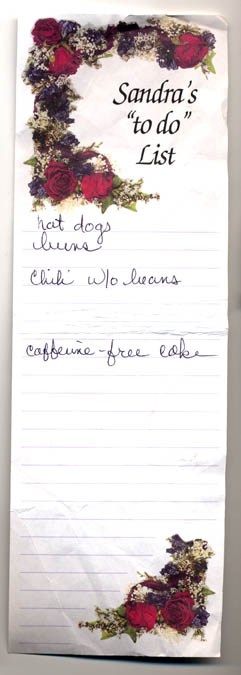 Sandra's
"to do"
List
hot dogs
buns
Chili w/o beans
caffeine-free coke